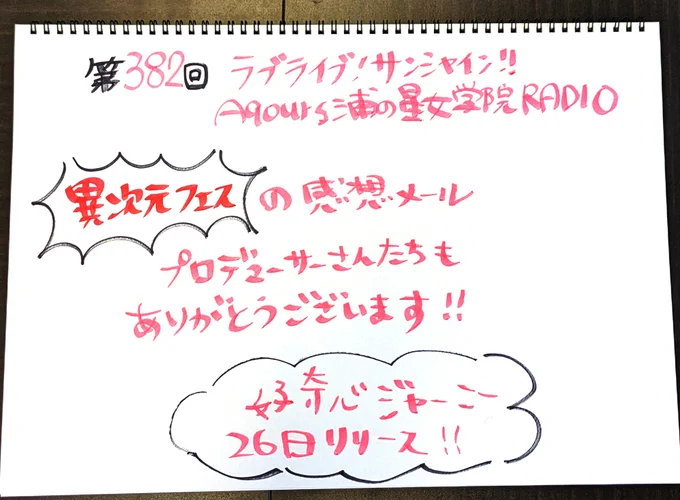 第382回 ラブライブ!サンシャイン!!
Aqours浦の星女学院RADIO
異次元フェスの感想メール
プロデューサーさんたちも
ありがとうございます!!
好奇心ジャーニー
26日リリース!!